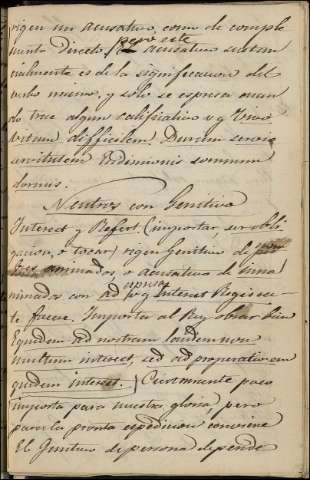 rigen un acusativo, como de comple
mento directo, pero este acusativo sustan
cialmente es de la significacion del
verbo mismo, y solo se espresa cuan
do trae algun calificativo v g Vivo
vitam difficilem. Duram servio
servitutem Endimionis somnum
dormis.
Neutros con Genitivo
Interest y Refert, (importar, ser obli
gacion, o tocar) rigen Genitivo de
animados, o acusativo de inna
nimados con ad v g Interest Regis
facere. Importa al Rey obrar bien
Equidem ad nostram laudem non
multum interest, sed ad properationem
quidem interest. Ciertamente poco
importa para nuestra gloria, pero
para la pronta espedicion conviene
El Genitivo de persona depende